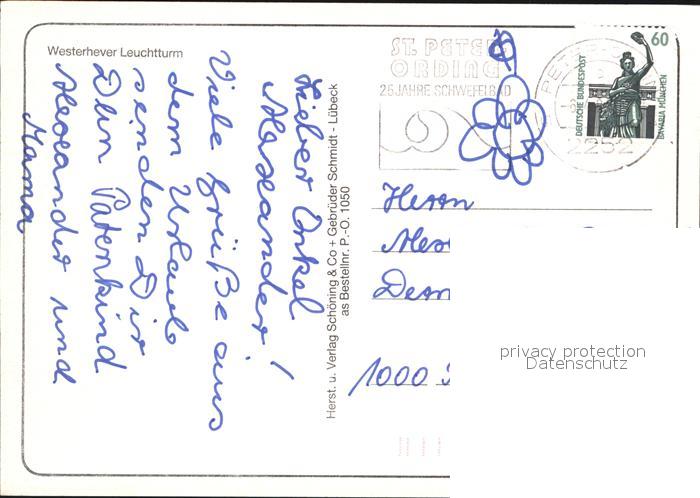 Westerhever Leuchtturm
Lieber Onkel
Alexander!
Viele Grüße aus
dem Urlaub
senden Dir
Dein Patenkind
Alexander und
Mama
Herst. u. Verlag Schöning & Co + Gebrüder Schmidt - Lübeck
as Bestellnr. P.-O. 1050
ST. PETER-
ORDING
25 JAHRE SCHWEFELBAD
2252
60
DEUTSCHE BUNDESPOST
BAVARIA MÜNCHEN
Herrn
1000
privacy protection
Datenschutz